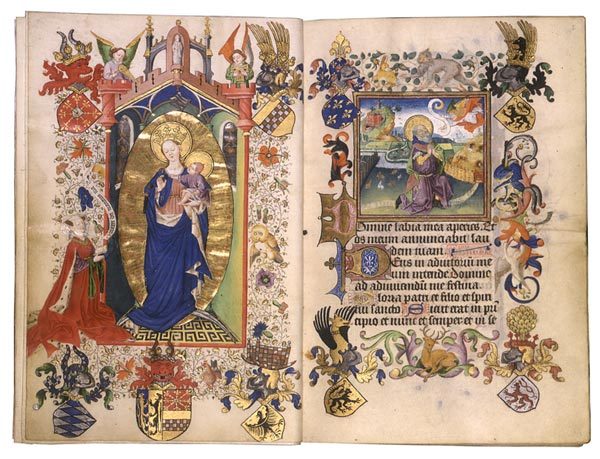 Domine labia mea aperies. Et
os meum annunciabit lau
dem tuam.
Deus in adiutoriū me
um intende domine
ad adiuvandū me festina
Gloria patri et filio et spiri
tui sancto Sicut erat in prī
cipio et nunc et semper et in se